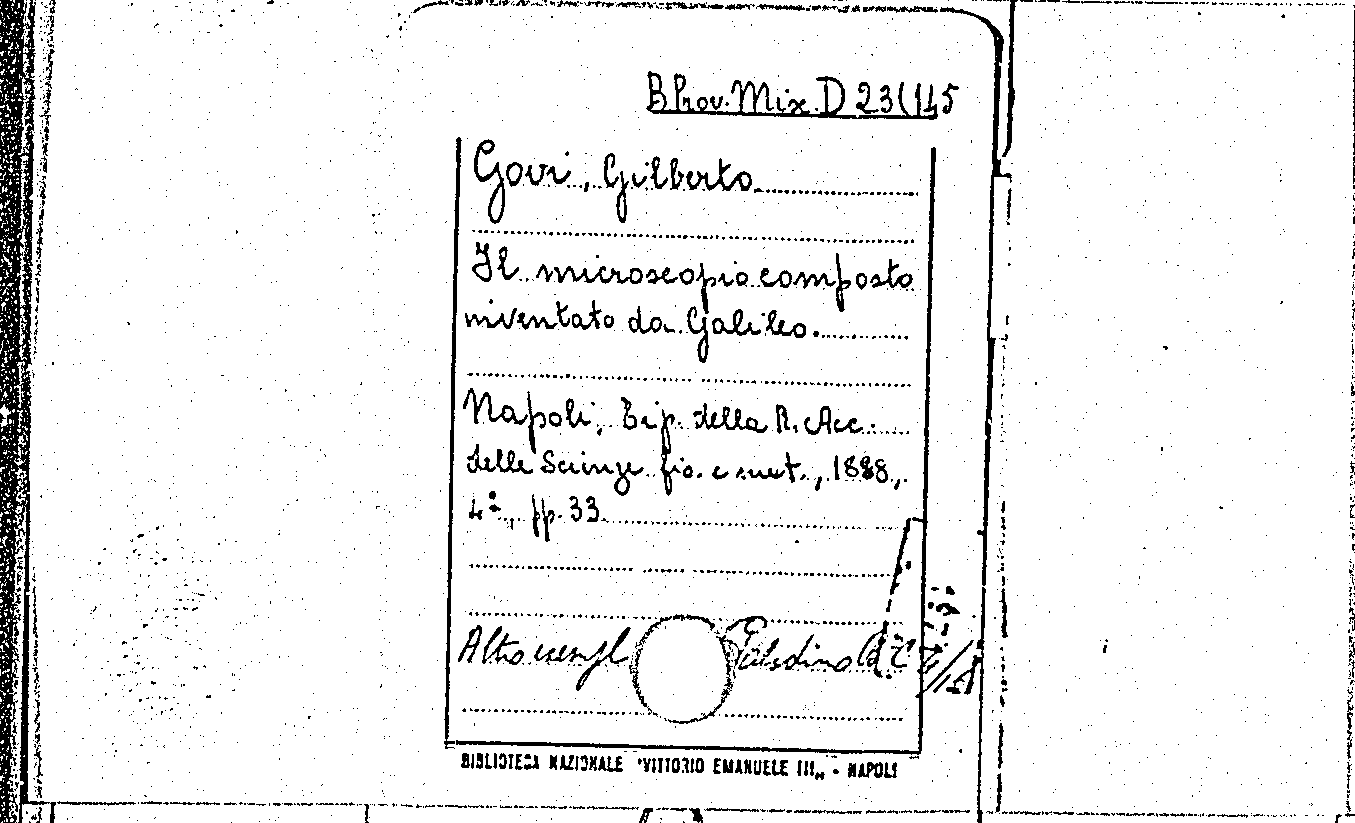 B. Prov. Mix. D 23(145
Govi, Gilberto
Il microscopio composto
inventato da Galileo.
Napoli, Tip. della R. Acc.
delle Scienze fis. e mat., 1888,
4º, pp. 33
Altro esempl
BIBLIOTECA NAZIONALE "VITTORIO EMANUELE III„ - NAPOLI